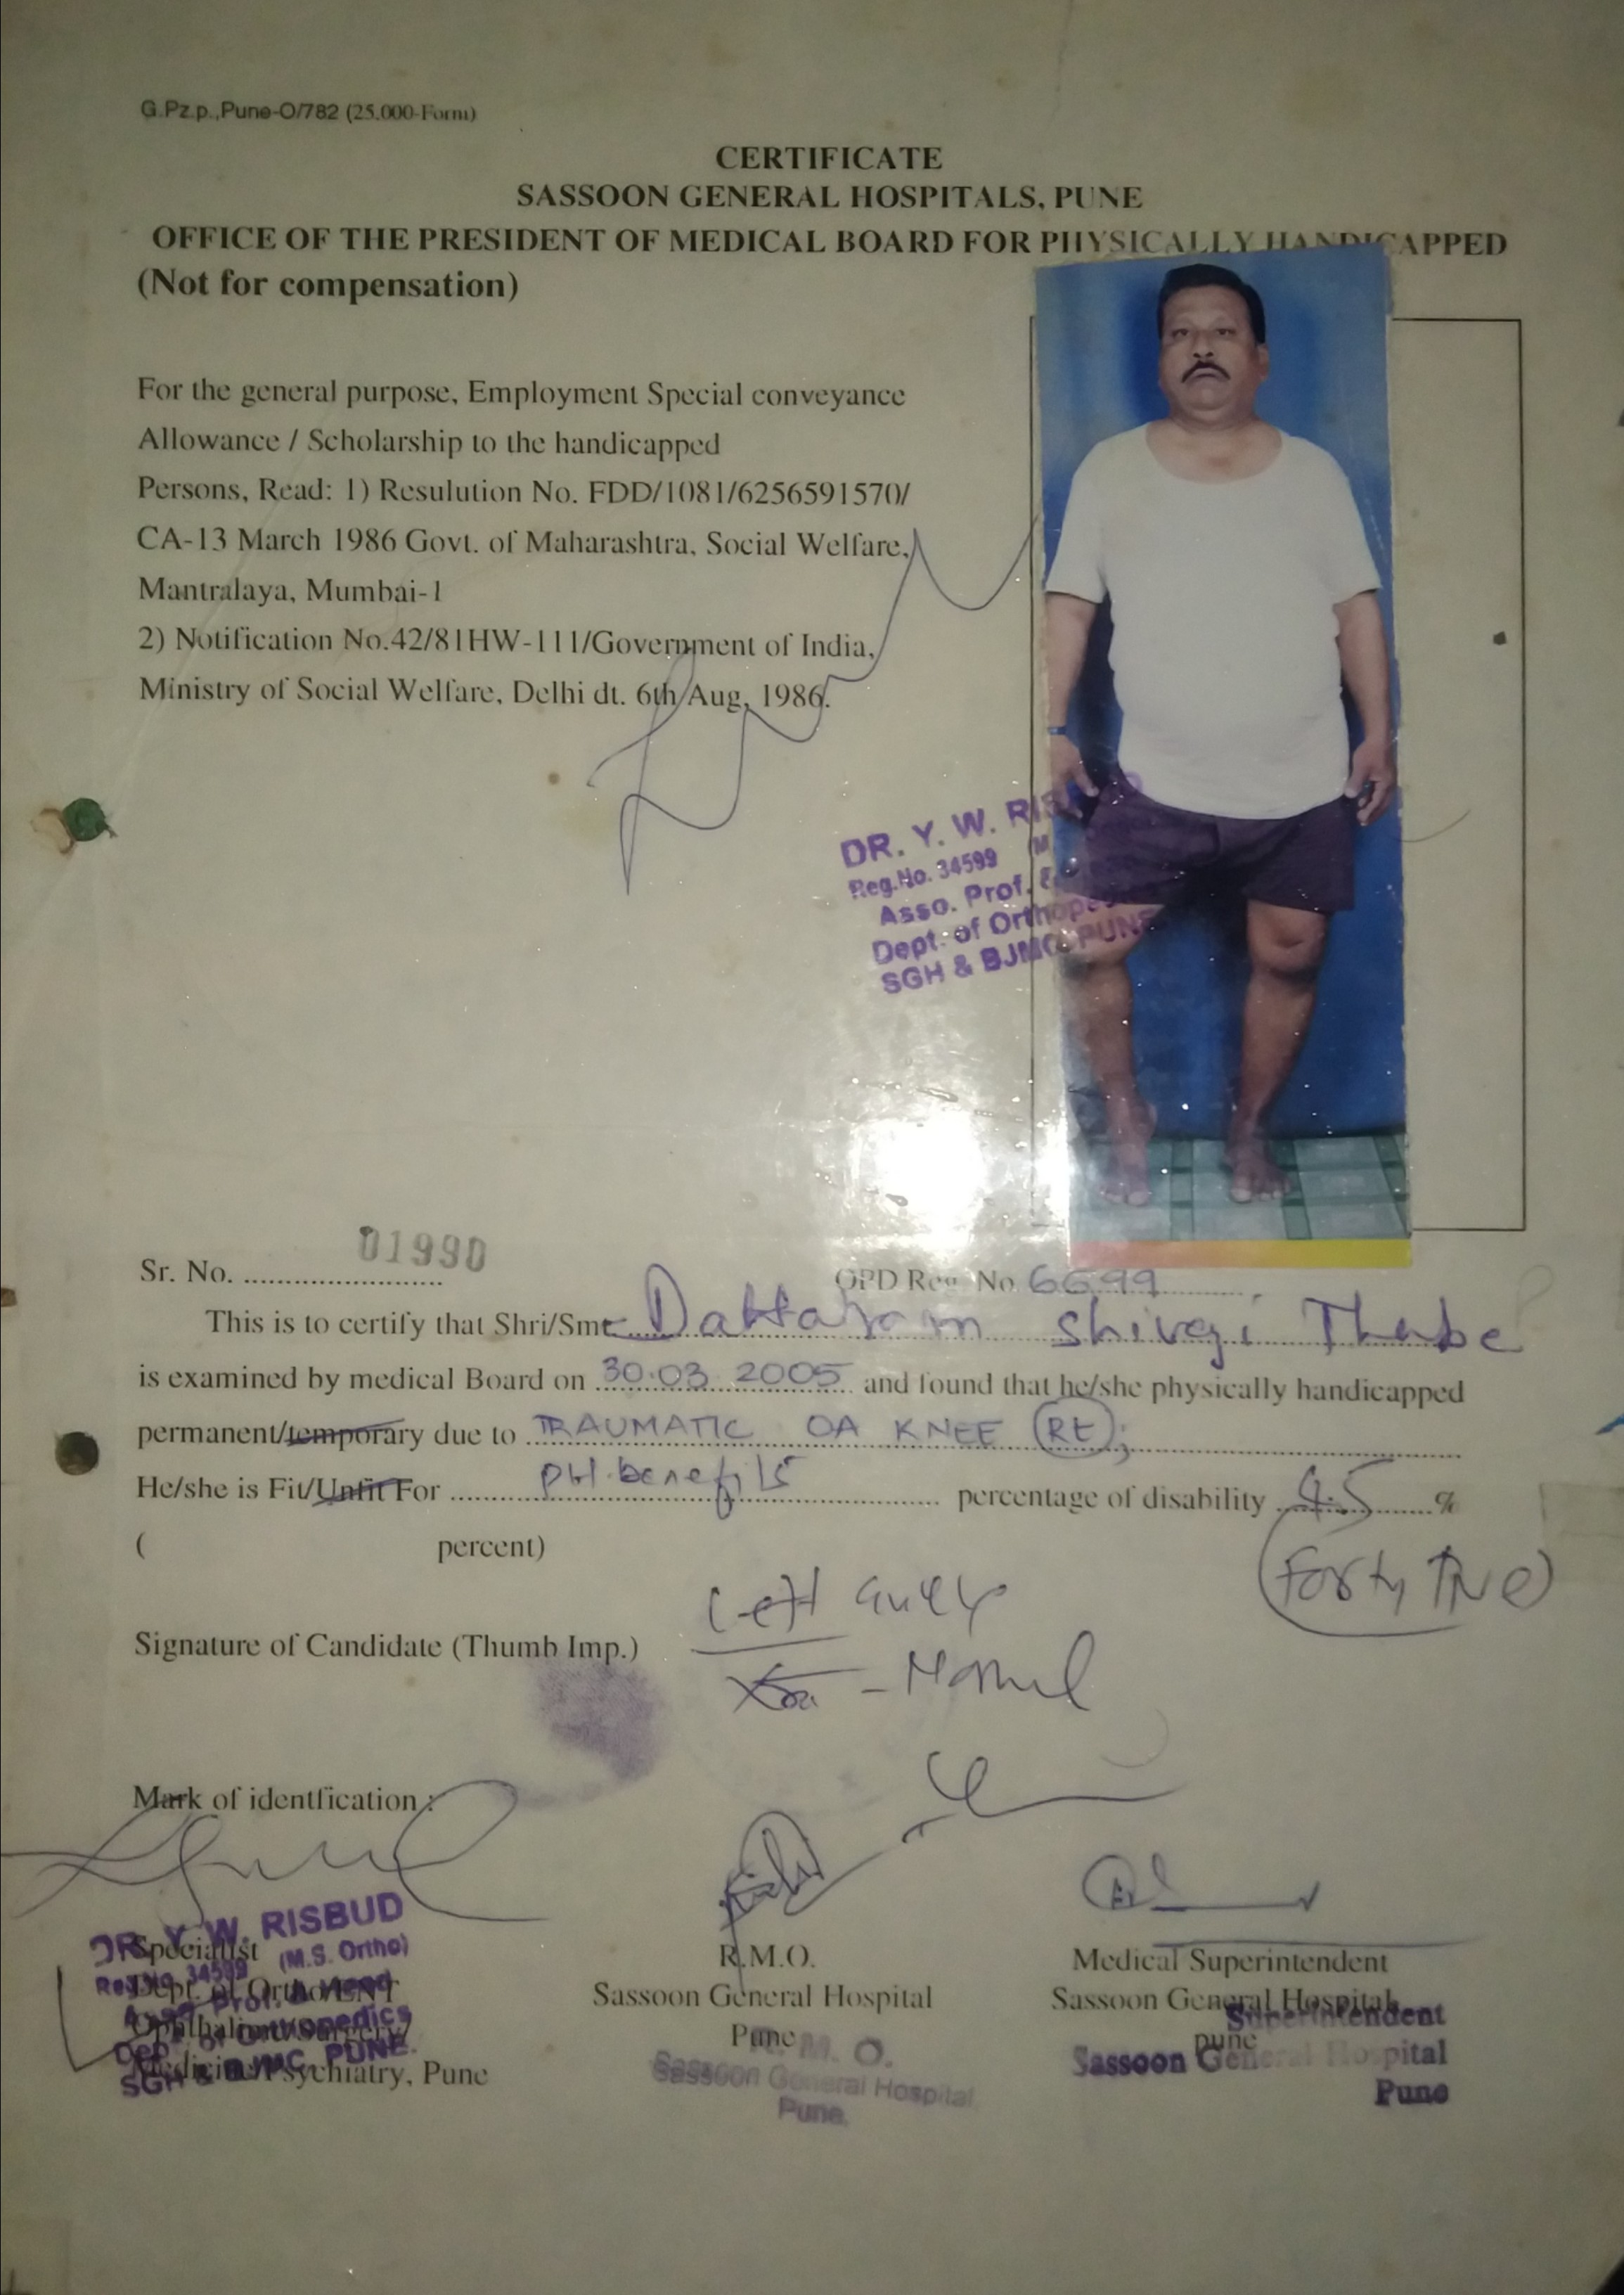 G.Pz.p.,Pune-O/782 (25.000-Form)
CERTIFICATE
SASSOON GENERAL HOSPITALS, PUNE
OFFICE OF THE PRESIDENT OF MEDICAL BOARD FOR PHYSICALLY HANDICAPPED
(Not for compensation)
For the general purpose, Employment Special conveyance
Allowance / Scholarship to the handicapped
Persons, Read: 1) Resulution No. FDD/1081/6256591570/
CA-13 March 1986 Govt. of Maharashtra, Social Welfare,
Mantralaya, Mumbai-1
2) Notification No.42/81HW-111/Government of India,
Ministry of Social Welfare, Delhi dt. 6th Aug, 1986.
DR. Y. W. RIS
Reg.No. 34599 (M
Asso. Prof. &
Dept. of Orthopedics
SGH & BJMC PUNE
Sr. No. 01990
OPD Reg. No 6699
This is to certify that Shri/Smt Dattaram Shivaji Thube
is examined by medical Board on 30.03.2005 and found that he/she physically handicapped
permanent/temporary due to TRAUMATIC OA KNEE (RT);
He/she is Fit/Unfit For PH benefits percentage of disability 45 %
( percent) (Forty Five)
Signature of Candidate (Thumb Imp.)
Left
Normal
Mark of identfication :
DR. Y. W. RISBUD
(M.S. Ortho)
Reg.No. 34599
Asso. Prof. & Head
Dept. of Orthopedics
SGH & BJMC, PUNE.
Specialist
Dept. of Ortho/ENT
Ophthalmic/Surgery/
Medicine/Psychiatry, Pune
R.M.O.
Sassoon General Hospital
Pune
R. M. O.
Sassoon General Hospital
Pune.
Medical Superintendent
Sassoon General Hospitals
pune
Superintendent
Sassoon General Hospital
Pune